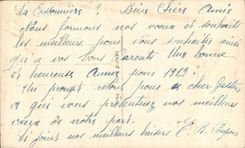 Bien Chers Amis
Nous formons nos voeux et souhaits
les meilleurs pour vous souhaiter ainsi
qu'a vos bons parents Une bonne
et heureuse Année pour 1919
Un prompt retour pour ce cher
a qui vous présenterez nos meilleurs
voeux de notre part.
nos meilleurs baisers